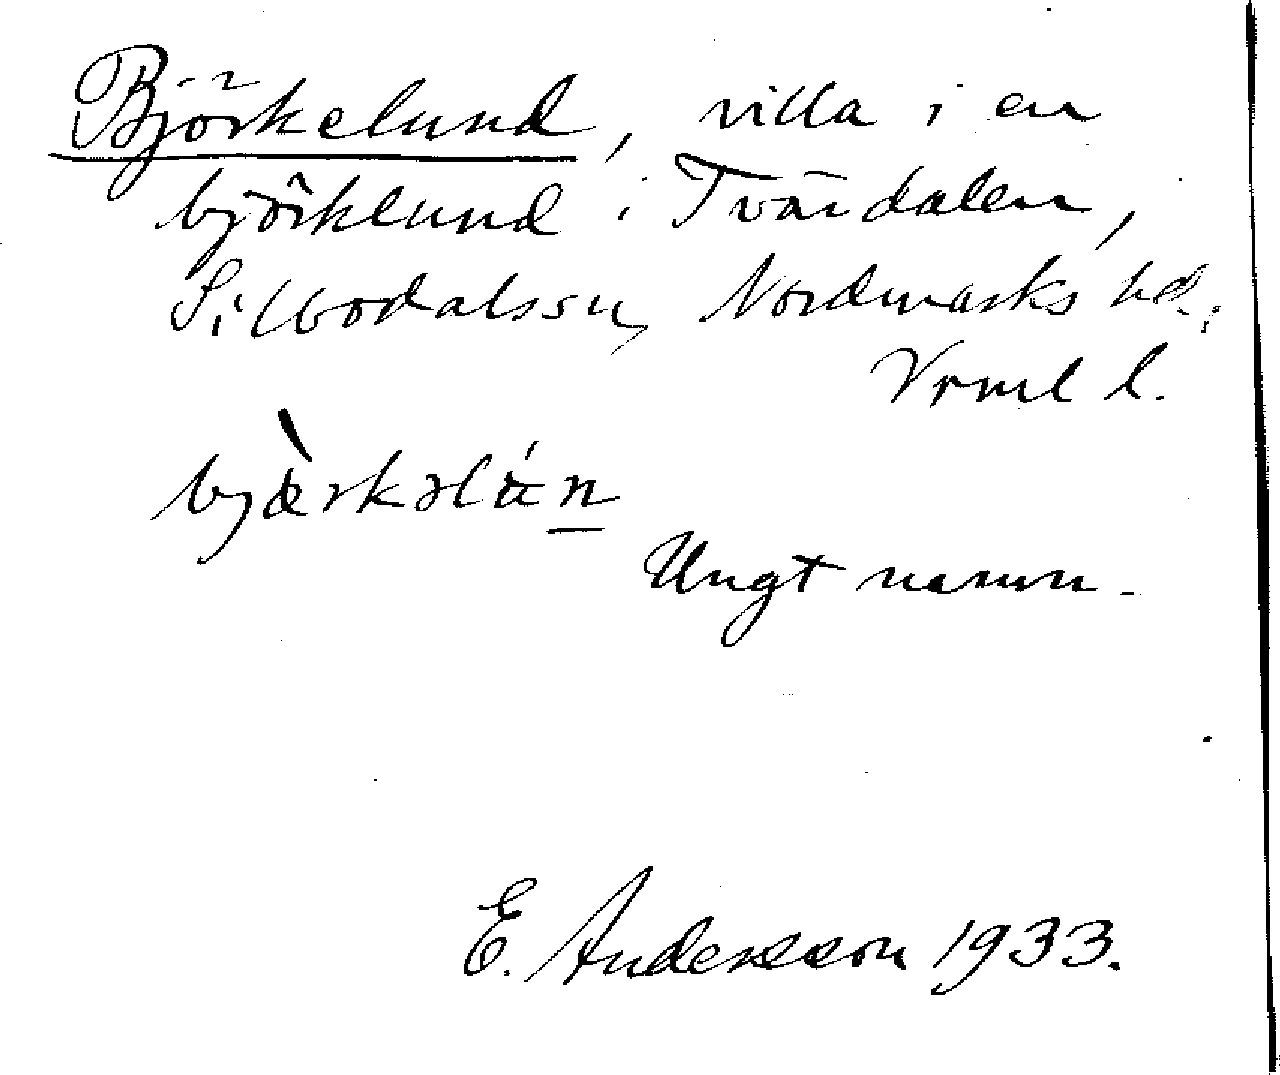 Björkelund, villa i en
björklund i Tvärdalen,
Silbodals sn, Nordmarks hd,
Vrml l.
bjærkəlun
Ungt namn.
E. Andersson 1933.